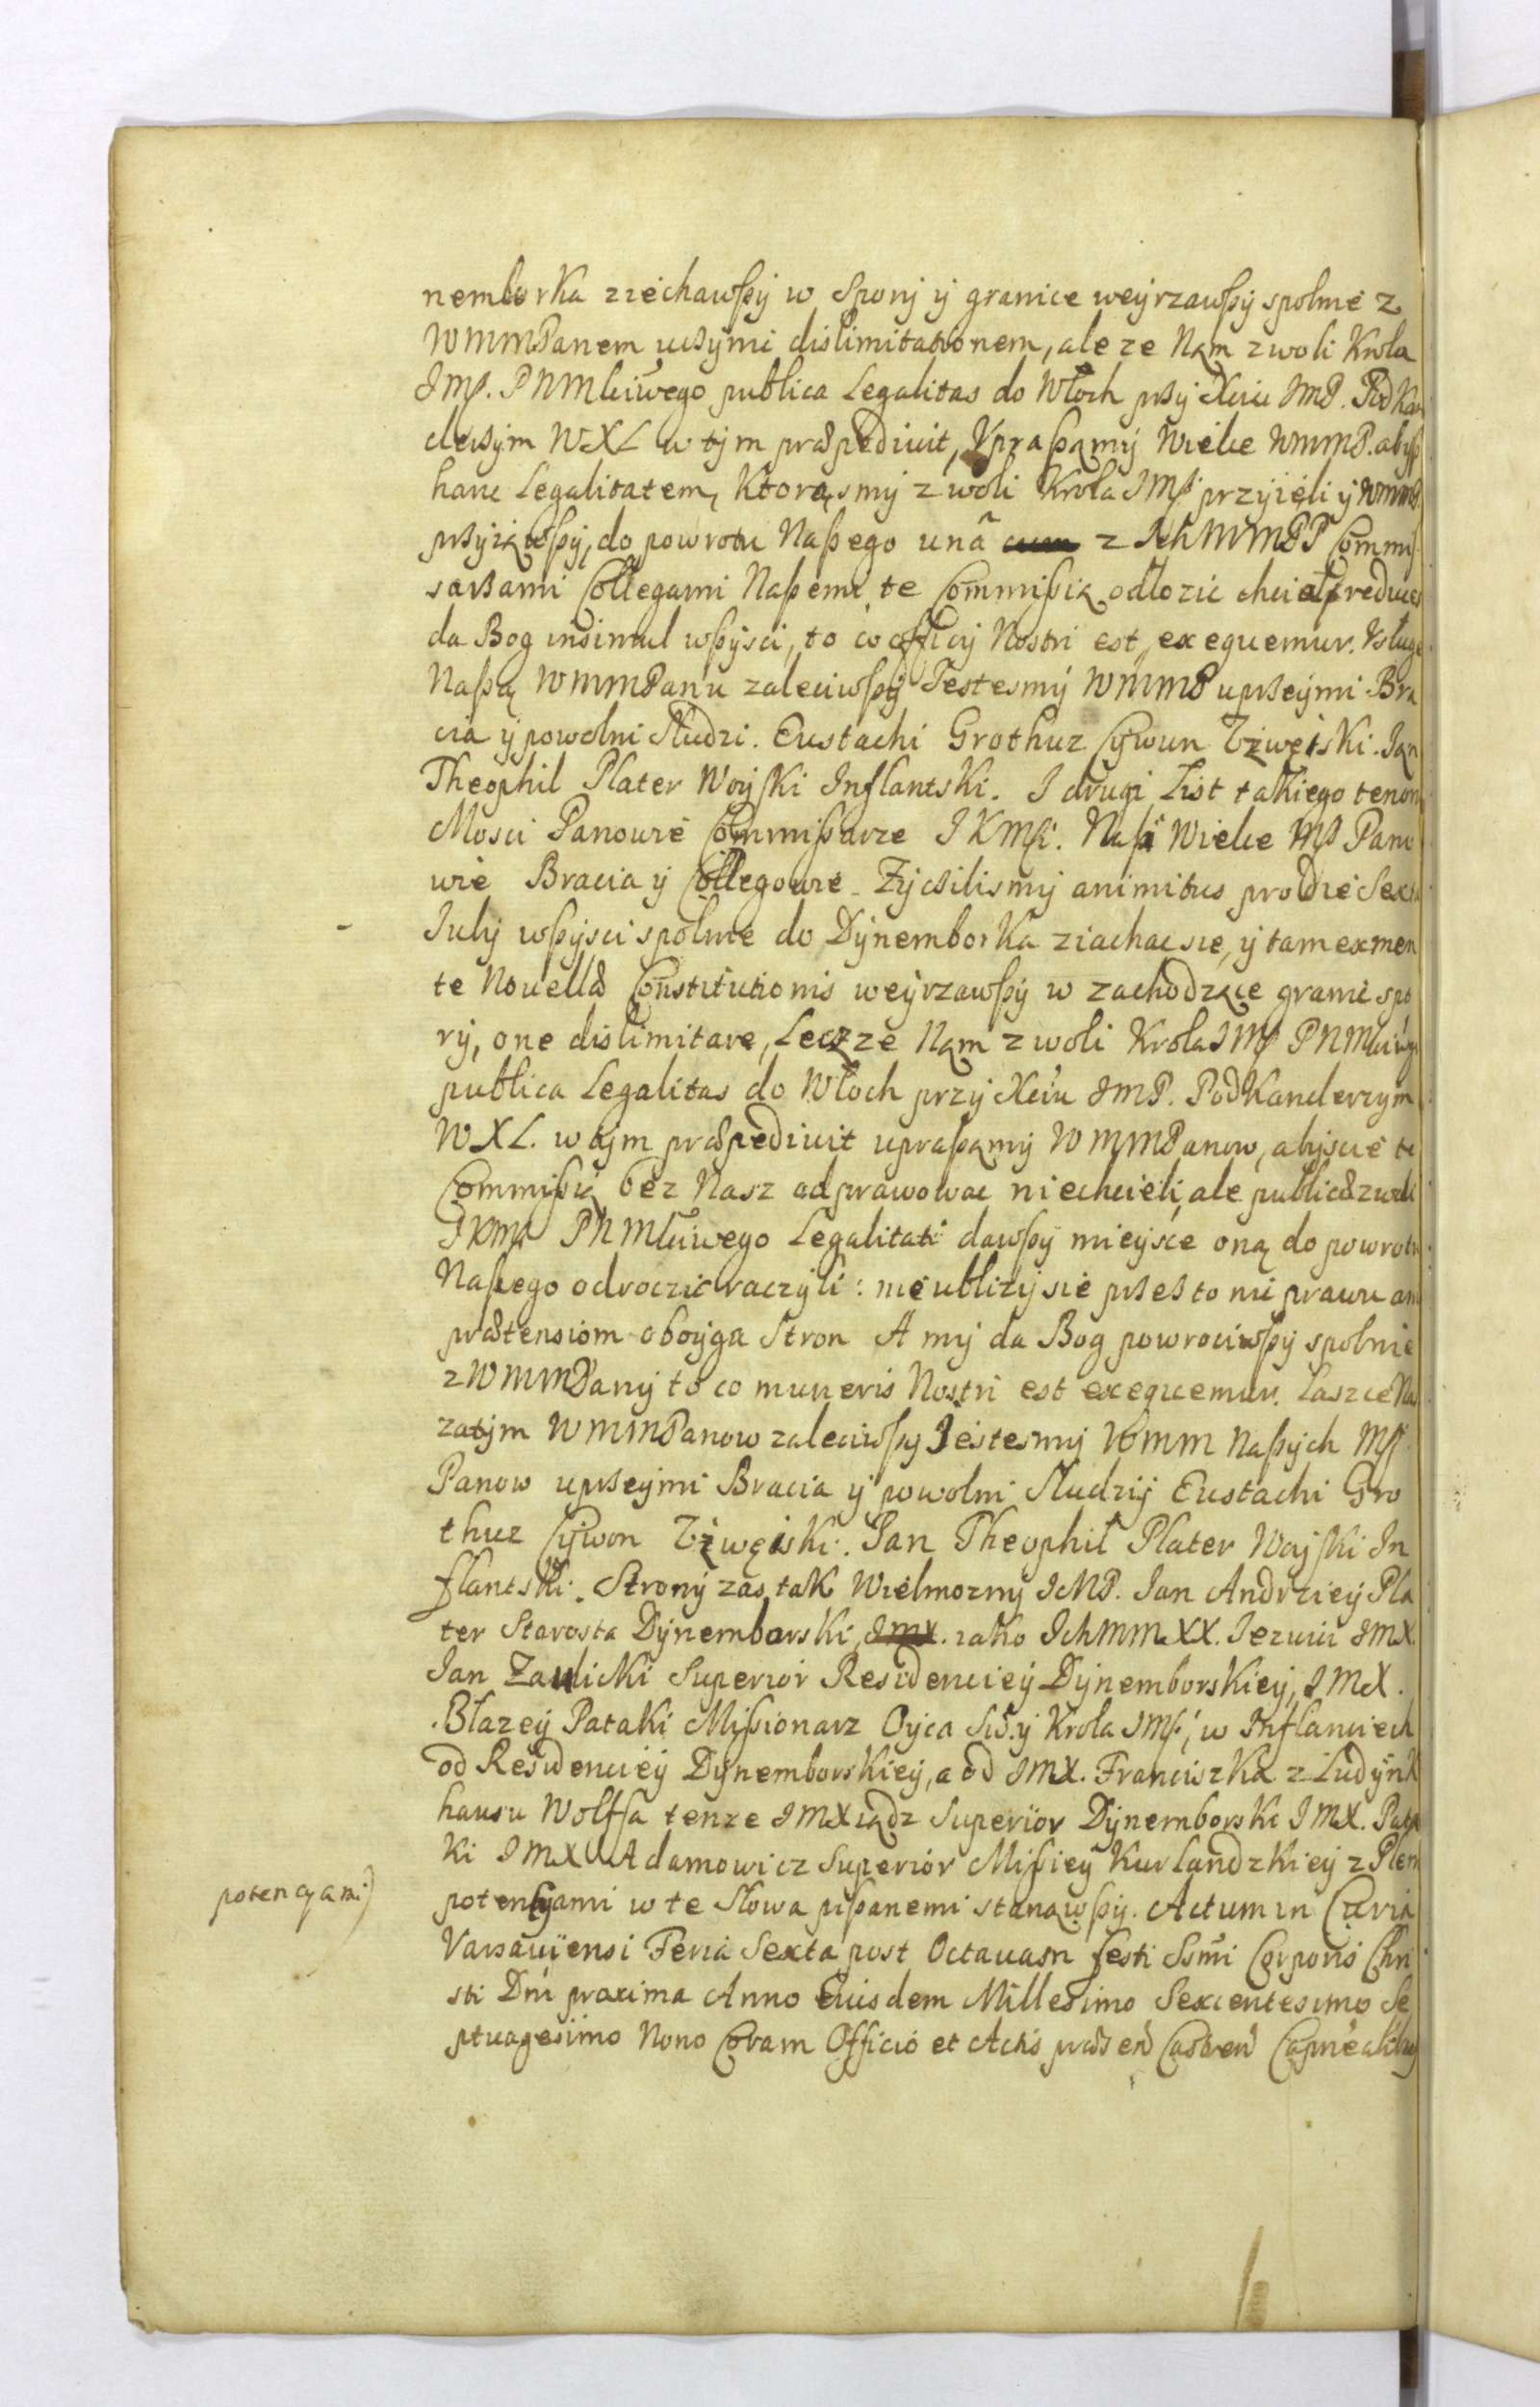 nemborka ziechawszÿ w Sporÿ ÿ granice weÿrzawszÿ spolnie z
WMMPanem uczÿnic dislimitationem, ale ze Nąm z woli Krola
JMſi. PNMłciwego publica Legalitas do Włoch przÿ Xciu JMP. PodKan
clerzÿm WXL w tÿm præpediuit, Vprasząmÿ Wielce WMMP. abÿs
hanc Legalitatem, Ktorąsmÿ z woli Krola JMſi przÿięli ÿ WMMP
przÿiąwszÿ, do powrotu Naszego unâ z JchMMPP Commiſ
sarzami Collegami Naszemi te Commissią odłozic chciał, reduces
da Bog insimul wszÿsci, to co officij Nostri est, exequemur. Vsługe
Naszą WMMPanu zaleciwszÿ Iestesmÿ WMMP uprzeÿmi Bra
cia ÿ powolni Słudzi. Eustachi Grothuz Cÿwun Vzwęiski. Ian
Theophil Plater Woÿski Inflantski. I drugi List takiego tenoru
Mosci Panowie Commissarze JKMſci. Nasi Wielce MſP Pano
wie Bracia ÿ Collegowie Zÿczilismÿ animitus pro die Sexta
Iulÿ wszÿsci spolnie do Dÿnemborka ziachac się, ÿ tam ex men
te Nouellæ Constitutionis weÿrzawszÿ w zachodzące granic spo
rÿ, one dislimitare, Lecz ze Nąm z woli Krola JMſi PNMłciwgo
publica Legalitas do Włoch przÿ Xciu JMP. PodKanclerzÿm
WXL. w tÿm præpediuit uprasząmÿ WMMPanow, abÿscie te
Commissią bez Nasz odprawowac niechcieli, ale publicæ z woli
JKMſci PNMłciwego Legalitati dawszÿ mieÿsce oną do powrotu
Naszego odroczic raczÿli: nie ubliżÿ się przez to nic prawu ani
prætensiom oboÿga Stron A mÿ da Bog powrociwszÿ spolnie
z WMMPanÿ to co muneris Nostri est exequemur. Łasce Nas
zatÿm WMMPanow zaleciwszÿ Iestesmÿ WMM Naszÿch Mſci
Panow uprzeÿmi Bracia ÿ powolni Słudzÿ Eustachi Gro
thuz Cÿwon Vzwęiski. Ian Theophil Plater Woÿski In
flantski. Stronÿ zas tak Wielmoznÿ JeMP. Ian Andrzieÿ Pla
ter Starosta Dÿnemborski, iako JchMM XX. Iezuici JMX.
Ian Zawicki Superior Residencieÿ Dÿnemborskieÿ, JMX.
Błazeÿ Pataki Missionarz Oÿca Sw. ÿ Krola JMſci, w Inflanciech
od Residencieÿ Dÿnemborskieÿ, a od JMX. Franciszka z Ludÿnk
hausu Wolffa tenze JMXiądz Superior Dÿnemborski JMX. Pata
ki JMX Adamowicz Superior Missieÿ Kurlandzkieÿ z Plen
potencyami)
potencyami w te Słowa pisanemi stanąwszÿ. Actum in Curia
Varsauiensi Feria Sexta post Octauam festi Ssmi Corporis Chri
sti Dni proxima Anno Eiusdem Millesimo Sexcentesimo Se
ptuagesimo Nono Coram Officio et Actis præsen Castren Capnealibus